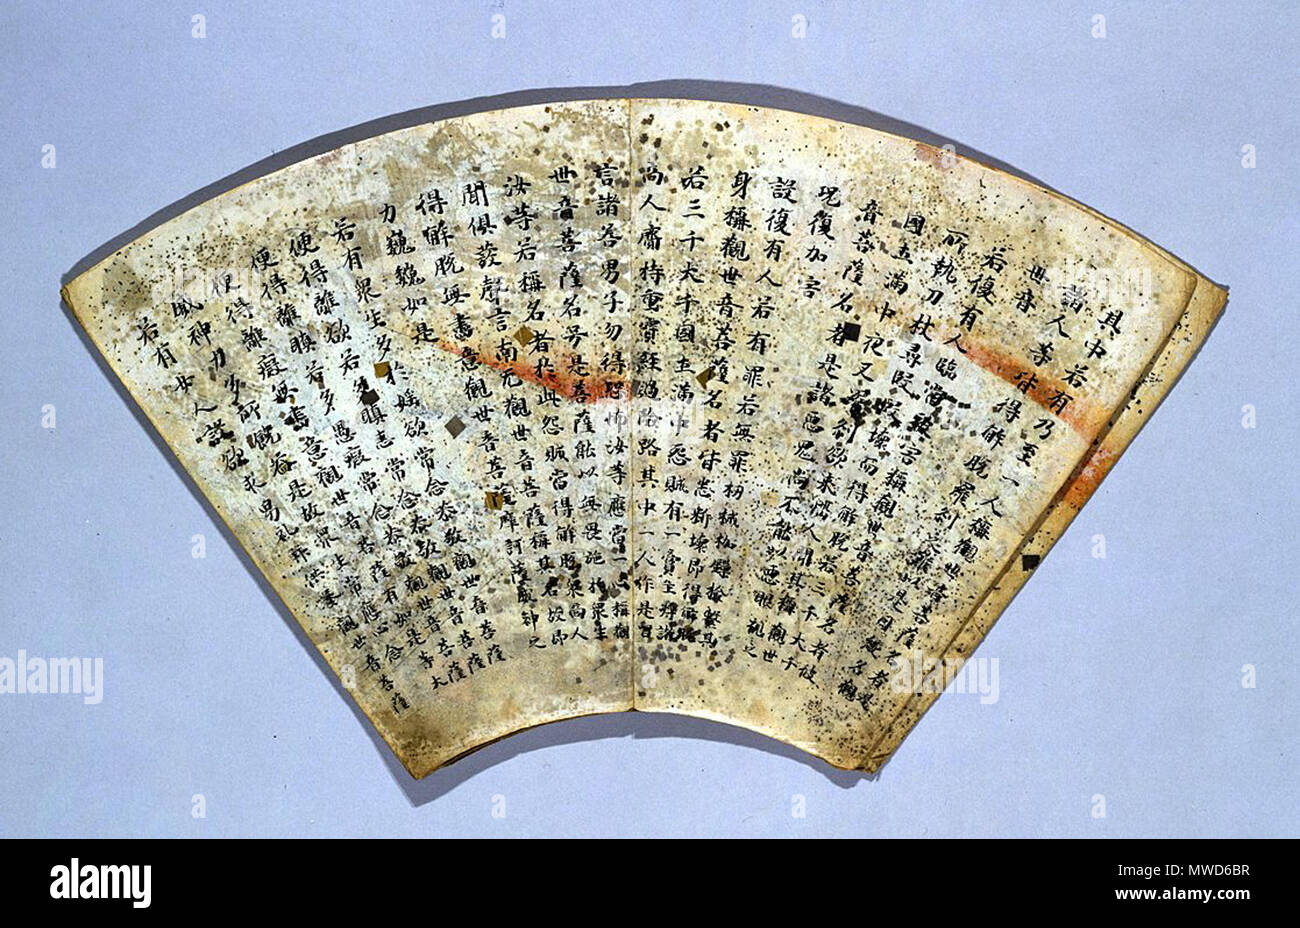 其中若有乃至一人稱觀世音菩薩名者是
諸人等皆得解脫羅剎之難以是因緣名觀
世音
若復有人臨當被害稱觀世音菩薩名者彼
所執刀杖尋段段壞而得解脫若三千大千
國土滿中夜叉羅剎欲來惱人聞其稱觀世
音菩薩名者是諸惡鬼尚不能以惡眼視之
況復加害
設復有人若有罪若無罪杻械枷鎖檢繫其
身稱觀世音菩薩名者皆悉斷壞即得解脫
若三千大千國土滿中怨賊有一商主將諸
商人齎持重寶經過險路其中一人作是唱
言諸善男子勿得恐怖汝等應當一心稱觀
世音菩薩名号是菩薩能以無畏施於眾生
汝等若稱名者於此怨賊當得解脫眾商人
聞俱發聲言南无觀世音菩薩稱其名故即
得解脫無盡意觀世音菩薩摩訶薩威神之
力巍巍如是
若有眾生多於婬欲常念恭敬觀世音菩薩
便得離欲若多瞋恚常念恭敬觀世音菩薩
便得離瞋若多愚癡常念恭敬觀世音菩薩
便得離癡無盡意觀世音菩薩有如是等大
威神力多所饒益是故眾生常應心念
若有女人設欲求男礼拜供養觀世音菩薩
alamy
Image ID: MWD6BR
www.alamy.com